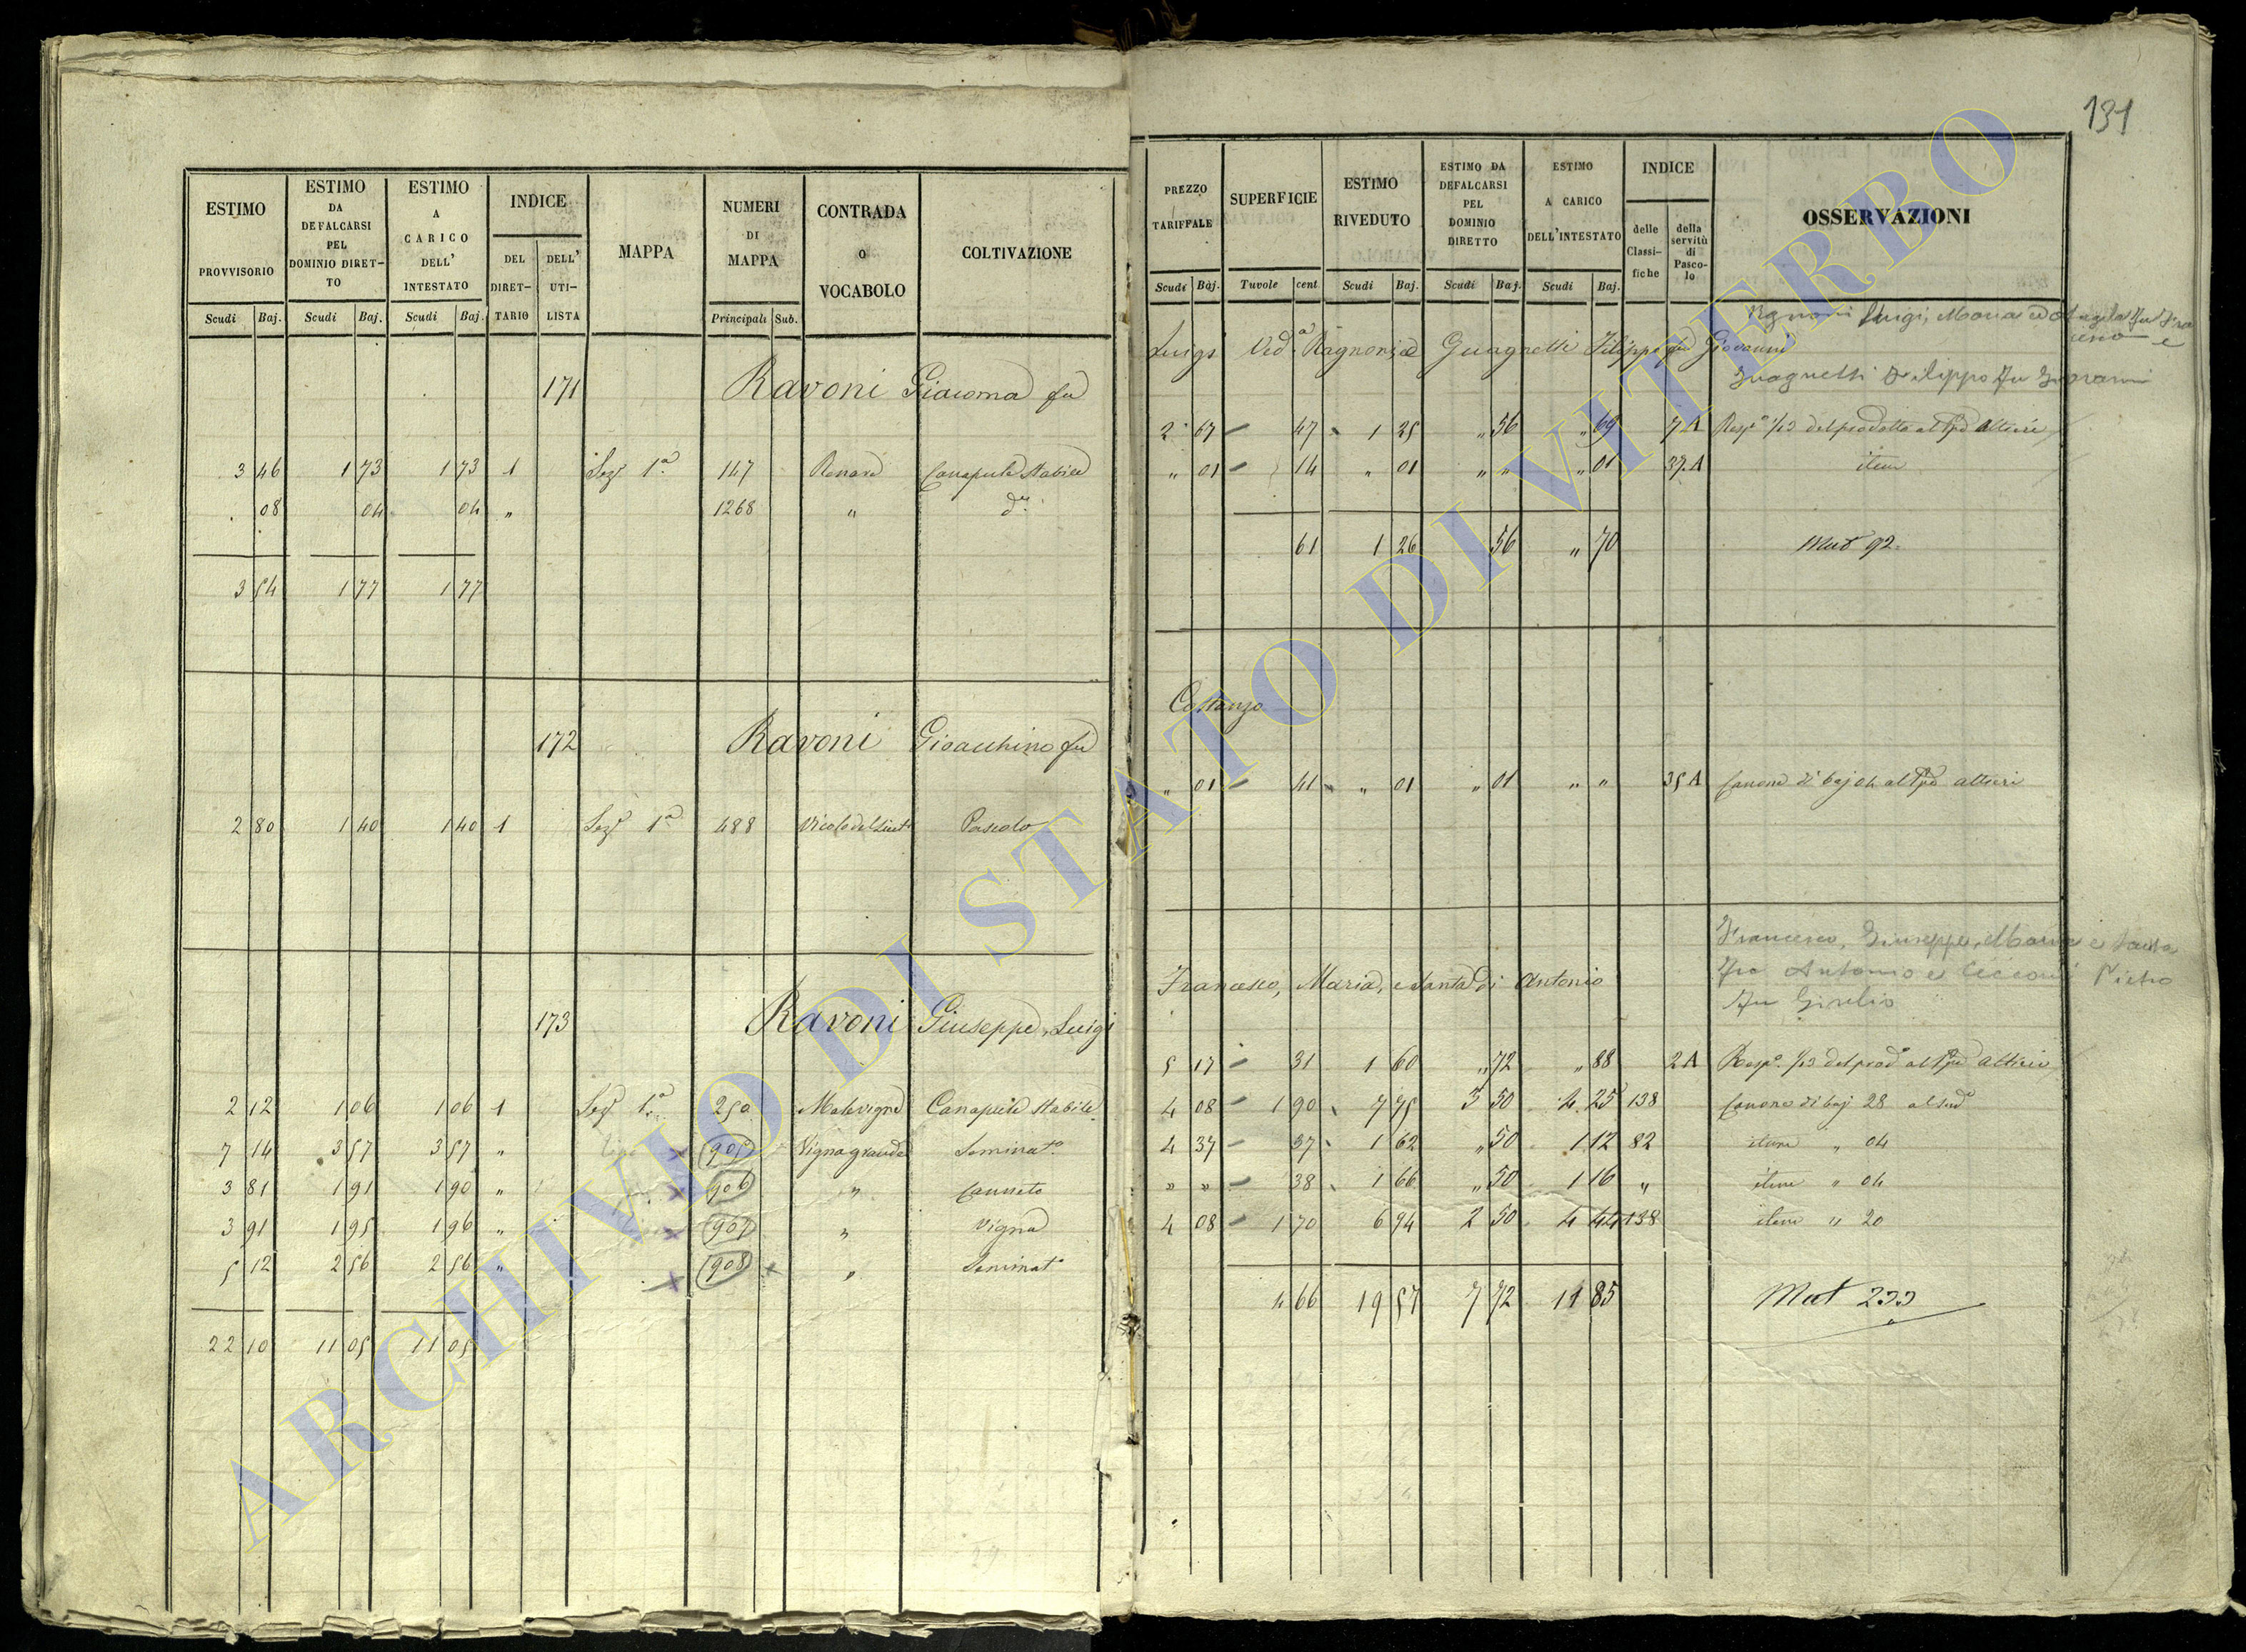 131
ESTIMO PROVVISORIO | ESTIMO DA DEFALCARSI PEL DOMINIO DIRETTO | ESTIMO A CARICO DELL' INTESTATO | INDICE | MAPPA | NUMERI DI MAPPA | CONTRADA O VOCABOLO | COLTIVAZIONE
DEL DIRETTARIO | DELL' UTILISTA
Scudi | Baj. | Scudi | Baj. | Scudi | Baj. | Principali | Sub.
171 Ravoni Giacoma fu
3 46 | 1 73 | 1 73 | 1 | Sez.e 1.a | 147 | Canapule Stabile
08 | 04 | 04 | " | 1268 | " | d.o
3 54 | 1 77 | 1 77
172 Ravoni Gioacchino fu
2 80 | 1 40 | 1 40 | 1 | Sez.e 1.a | 488 | Pascolo
173 Ravoni Giuseppe, Luigi
2 12 | 1 06 | 1 06 | 1 | Sez.e 1.a | 250 | Malevigne | Canapule Stabile
7 14 | 3 57 | 3 57 | " | 905 | Vigna grande | Seminat.o
3 81 | 1 91 | 1 90 | " | 906 | " | Canneto
3 91 | 1 95 | 1 96 | " | 907 | " | Vigna
5 12 | 2 56 | 2 56 | " | 908 | " | Seminat.o
22 10 | 11 05 | 11 05
PREZZO TARIFFALE | SUPERFICIE | ESTIMO RIVEDUTO | ESTIMO DA DEFALCARSI PEL DOMINIO DIRETTO | ESTIMO A CARICO DELL'INTESTATO | INDICE | OSSERVAZIONI
delle Classifiche | della servitù di Pascolo
Scudi | Baj. | Tavole | cent | Scudi | Baj. | Scudi | Baj. | Scudi | Baj.
Luigi, Maria ed Angela fu
Luigi Ved.a Ragnoni e Guagnelli Filippo fu Giovanni
Guagnelli Filippo fu Giovanni
2 67 | 47 | 1 25 | " 56 | " 69 | 7 A | Resp.e 1/13 del prodotto al Ppe Altieri
" 01 | 14 | " 01 | " " | " 01 | 37 A | item
61 | 1 26 | 56 | " 70 | Mut 92.
Costanzo
" 01 | 41 | " 01 | " 01 | " " | 35 A | Canone di baj 04 al Ppe Altieri
Francesco, Giuseppe, Maria e Santa
fra Antonio e Pietro
fu Giulio
Francesco, Maria, e Santa di Antonio
5 17 | 31 | 1 60 | " 72 | " 88 | 2 A | Resp.e 1/13 del prod.o al Ppe Altieri
4 08 | 1 90 | 7 75 | 3 50 | 4 25 | 138 | Canone di baj 28 al sud.o
4 37 | 37 | 1 62 | " 50 | 1 12 | 82 | item " 04
" " | 38 | 1 66 | " 50 | 1 16 | " | item " 04
4 08 | 1 70 | 6 94 | 2 50 | 4 44 | 138 | item " 20
4 66 | 19 57 | 7 72 | 11 85 | Mut 233
ARCHIVIO DI STATO DI VITERBO